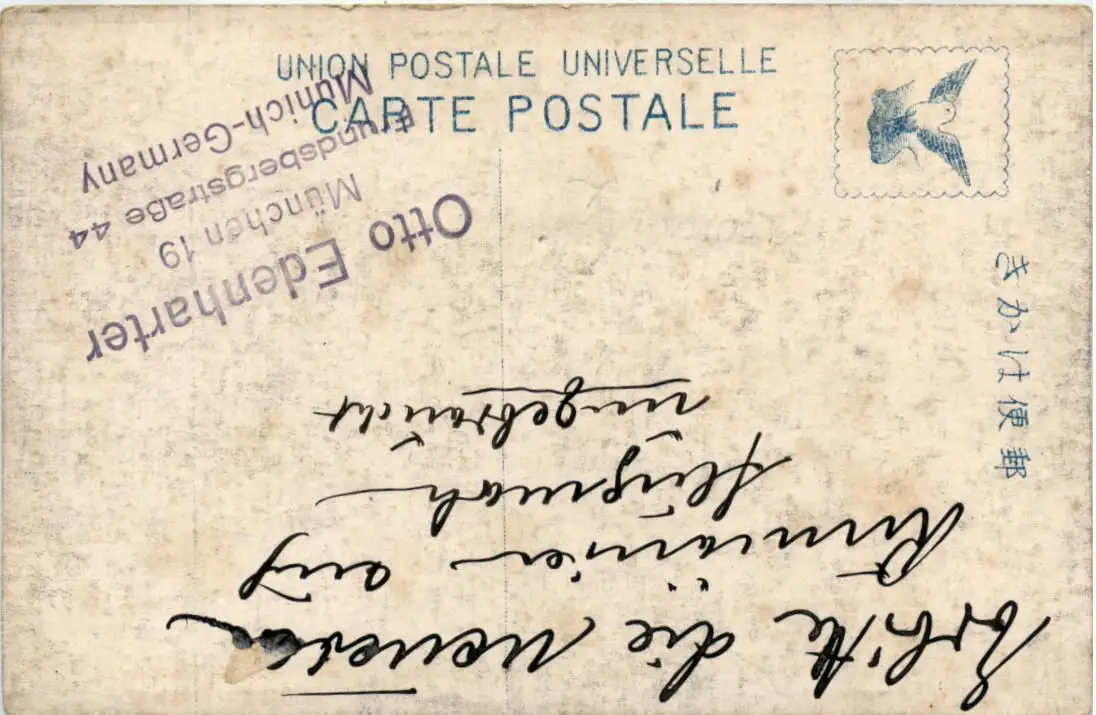 UNION POSTALE UNIVERSELLE
CARTE POSTALE
郵便はかき
Otto Edenharter
München 19
Frundsbergstraße 44
Munich-Germany
Erbitte die
Rumänien auf
ungebraucht